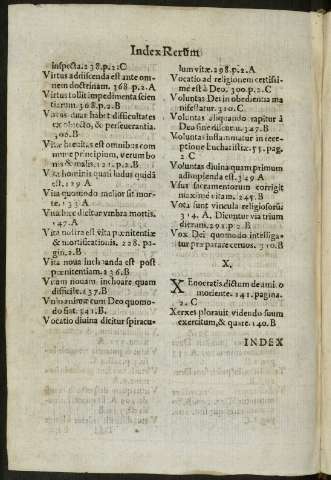 Index Rerum
inspecta.238.p.2.C
Virtus adriscenda est ante om-
nem doctrinam. 368.p.2.A
Virtus tollit impedimenta scien
tiarum. 368.p.2.B
Virtus duas habet difficultates
ex obiecto, & perseuerantia.
306.B
Vitæ breuitas est omnibus com
mune principium, verum bo
nis & malis. 121.p.2.B
Vita hominis quasi ludus quidã
est. 129.A
Vita quomodo melior sit mor-
te. 133.A
Vita breuis dicitur vmbra mortis.
147.A
Vita nostra est vita pœnitentiæ
& mortificationis. 228. pa-
gin.2.B
Vita noua inchoanda est post
pœnitentiam. 236.B
Vitam nouam inchoare quam
difficile. 237.B
Vnio animæ cum Deo quomo-
do fiat. 341.B.
Vocatio diuina dicitur spiracu-
lum vitæ. 298.p.2.A
Vocatio ad religionem certissi-
me est à Deo. 300.p.2.C
Voluntas Dei in obedientia ma
nifestatur. 310.C
Voluntas aliquando rapitur à
Deo sine discursu. 347.B
Voluntas inflammatur in rece-
ptione Eucharistiæ. 55. pag.
2.C
Voluntas diuina quam primum
adimplenda est. 349.A
Vsus sacramentorum corrigit
maximè vitam. 245.B
Vota sunt vincula religiosorũ.
314. A. Dicuntur via trium
dierum. 292.p.2.B
Vox Dei quomodo intelliga-
tur præparare ceruos. 310.B
X.
Xenocratis dictum de amico
moriente. 141. pagina.
2.C
Xerxes plorauit videndo suum
exercitum, & quare. 140.B
INDEX